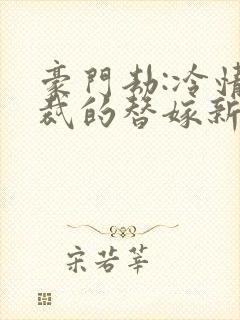 豪門劫:冷情
裁的替嫁新
宋若莘